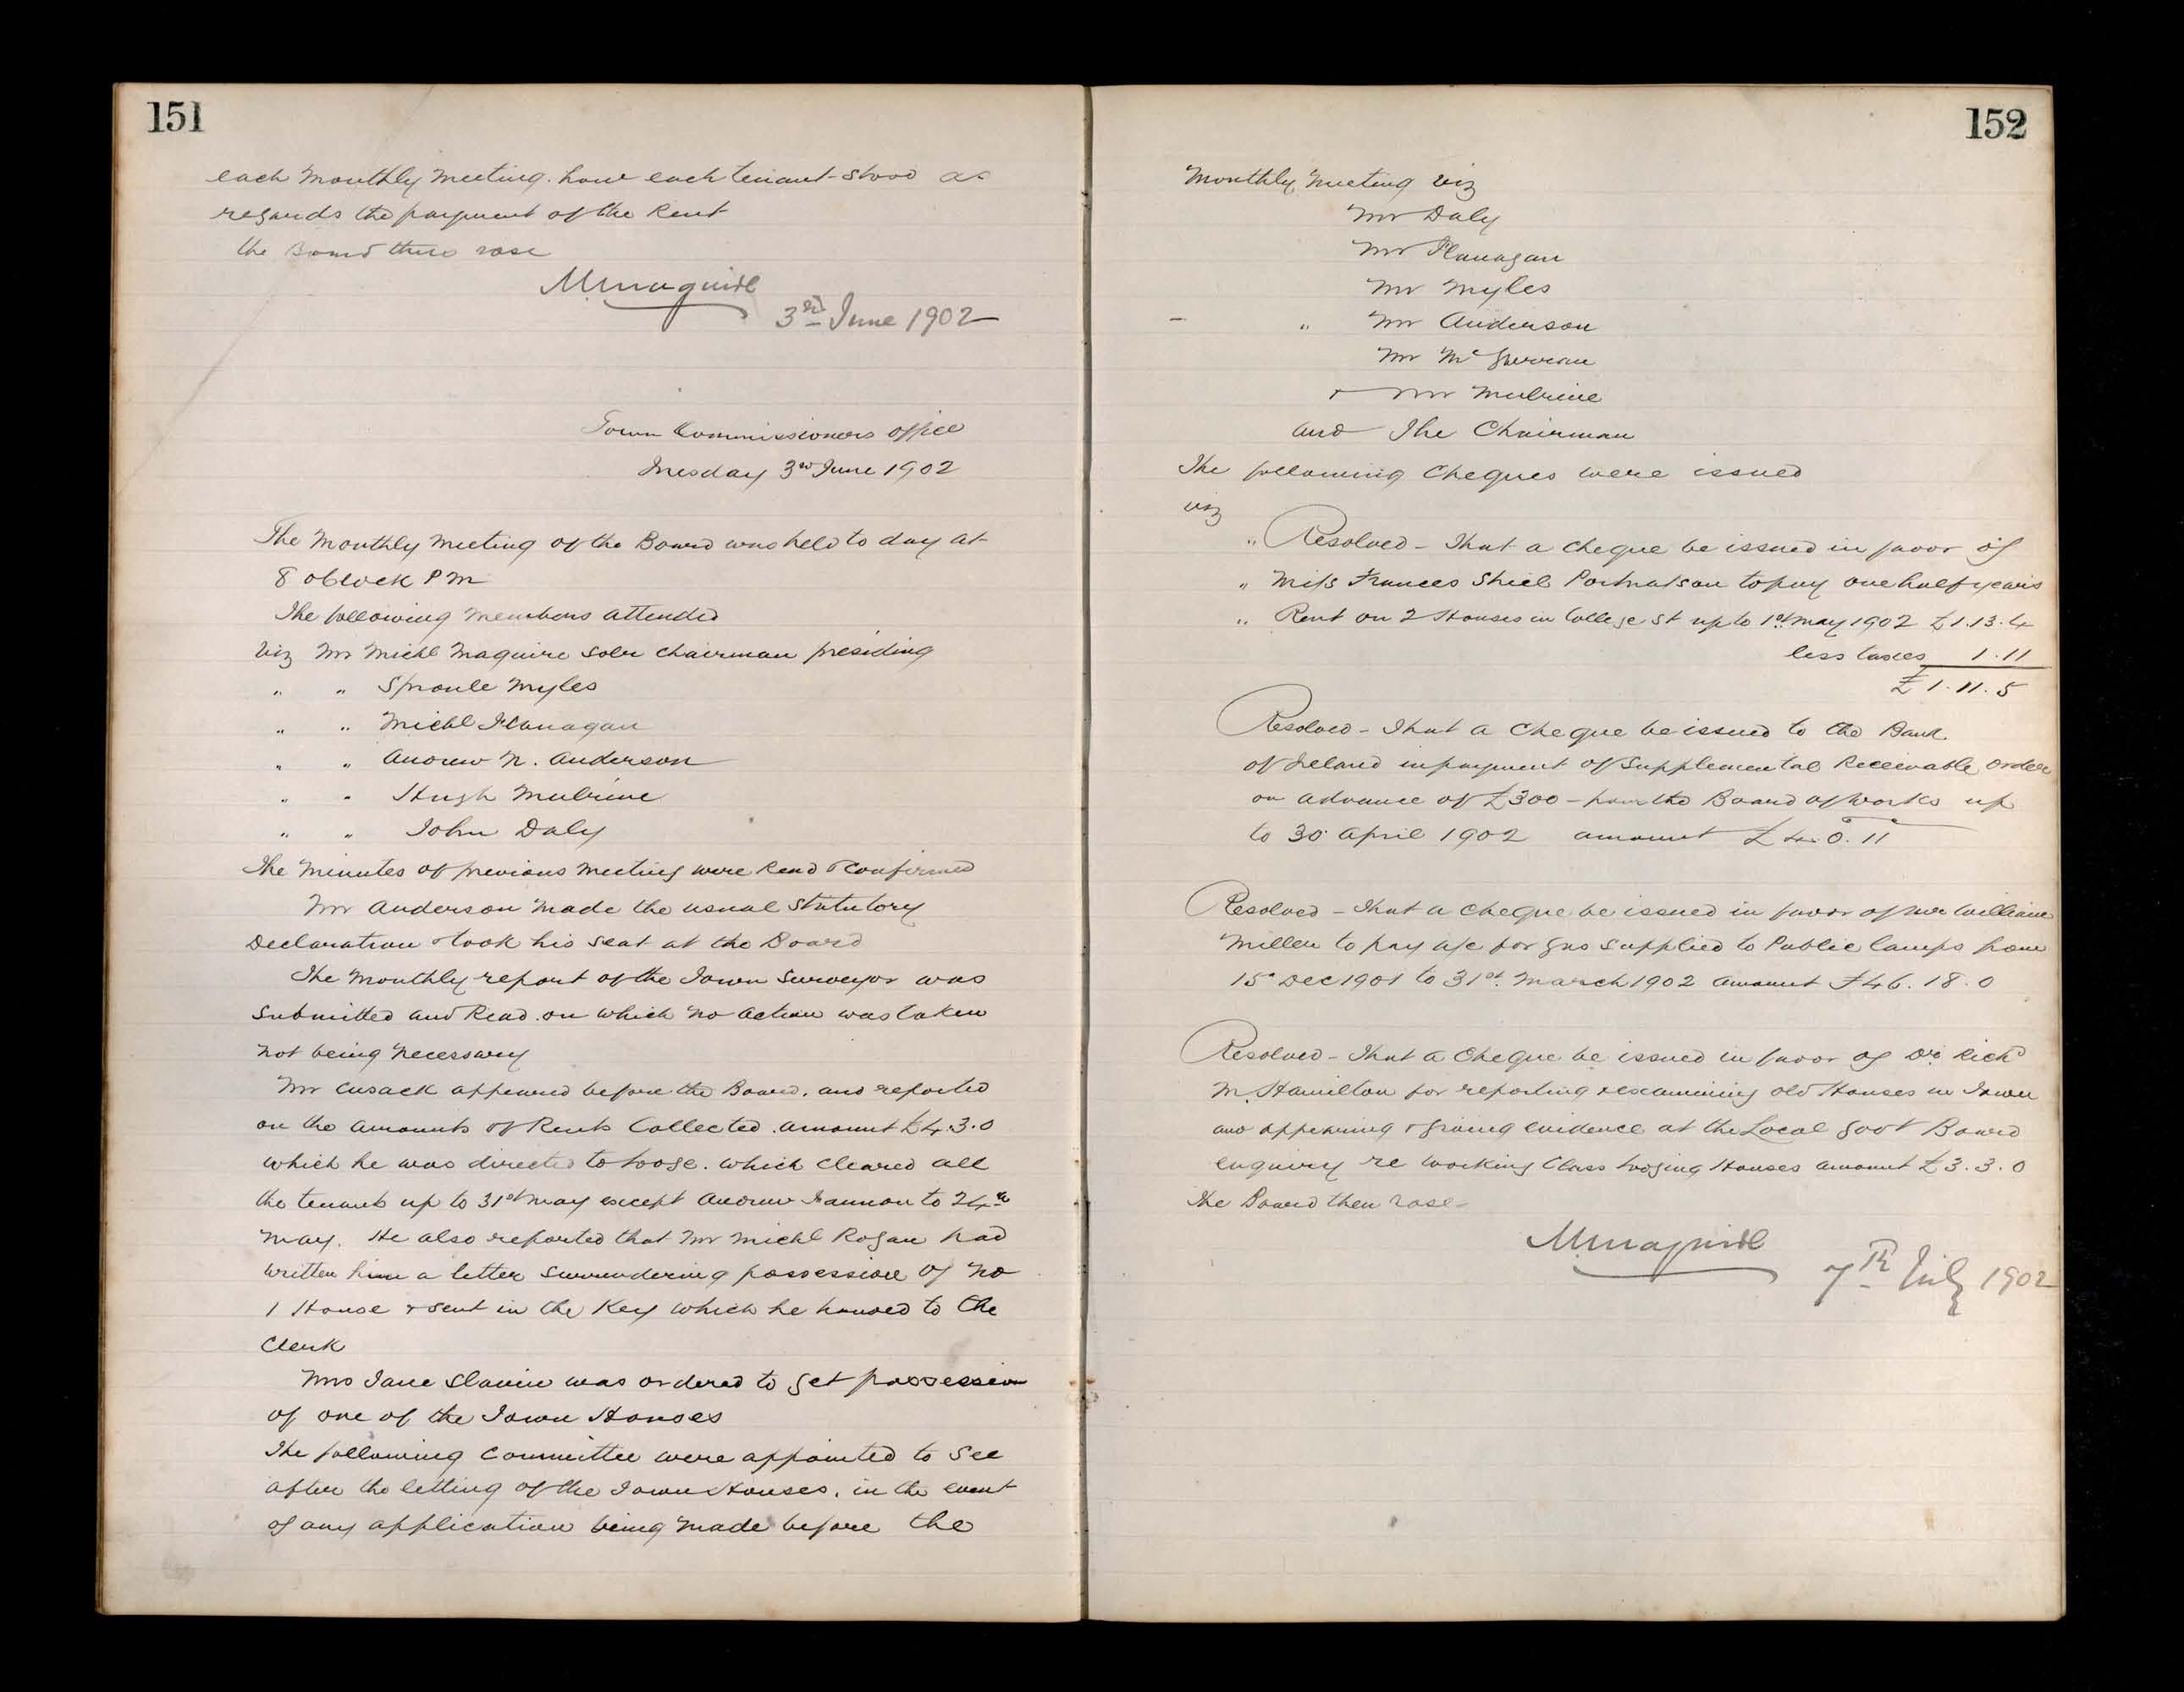 151
each Monthly Meeting. how each tenant stood as
regards the payment of the Rent
the Board then rose
MMaguire
3rd June 1902
Town Commissioners office
Tuesday 3rd June 1902
The Monthly Meeting of the Board was held to day at
8 oClock PM
The following Members attended
Viz Mr Michl Maguire Solr Chairman presiding
" " Sproule Myles
" " Michl Flanagan
" " Andrew N. Anderson
" " Hugh Mulrine
" " John Daly
The Minutes of previous Meeting were Read & Confirmed
Mr Anderson Made the usual Statutory
Declaration & took his seat at the Board
The Monthly report of the Town Surveyor was
Submitted and Read. on which No Action was taken
not being Necessary
Mr Cusack appeared before the Board. and reported
on the amounts of Rents Collected. amount £4.3.0
which he was directed to lodge. which cleared all
the tenants up to 31st May except Andrew Gannon to 24th
May. He also reported that Mr Michl Rogan had
written him a letter surrendering possession of No
1 House & sent in the Key which he handed to the
Clerk
Mrs Jane Slavin was ordered to get possession
of one of the Town Houses
The following Committee were appointed to See
after the letting of the Town Houses. in the event
of any application being Made before the
152
Monthly Meeting Viz
Mr Daly
Mr Flanagan
Mr Myles
" Mr Anderson
Mr McGurran
& Mr Mulrine
and The Chairman
The following Cheques were issued
viz
" Resolved - That a Cheque be issued in favor of
" Miss Frances Shiel Portnason to pay one half years
" Rent on 2 Houses in College St up to 1st May 1902 £1.13.4
less taxes 1.11
£1.11.5
Resolved - That a Cheque be issued to the Bank
of Ireland in payment of Supplemental Receivable Order
on advance of £300 - from the Board of Works up
to 30 April 1902 amount £4.0.11
Resolved - That a Cheque be issued in favor of Mr William
Miller to pay a/c for gas supplied to Public lamps from
15 Dec 1901 to 31st March 1902 amount £46.18.0
Resolved - That a Cheque be issued in favor of Dr Richd
M. Hamilton for reporting & examining old Houses in Town
and appearing & giving evidence at the Local Govt Board
enquiry re Working Class lodging Houses amount £3.3.0
The Board then rose -
MMaguire
7th July 1902